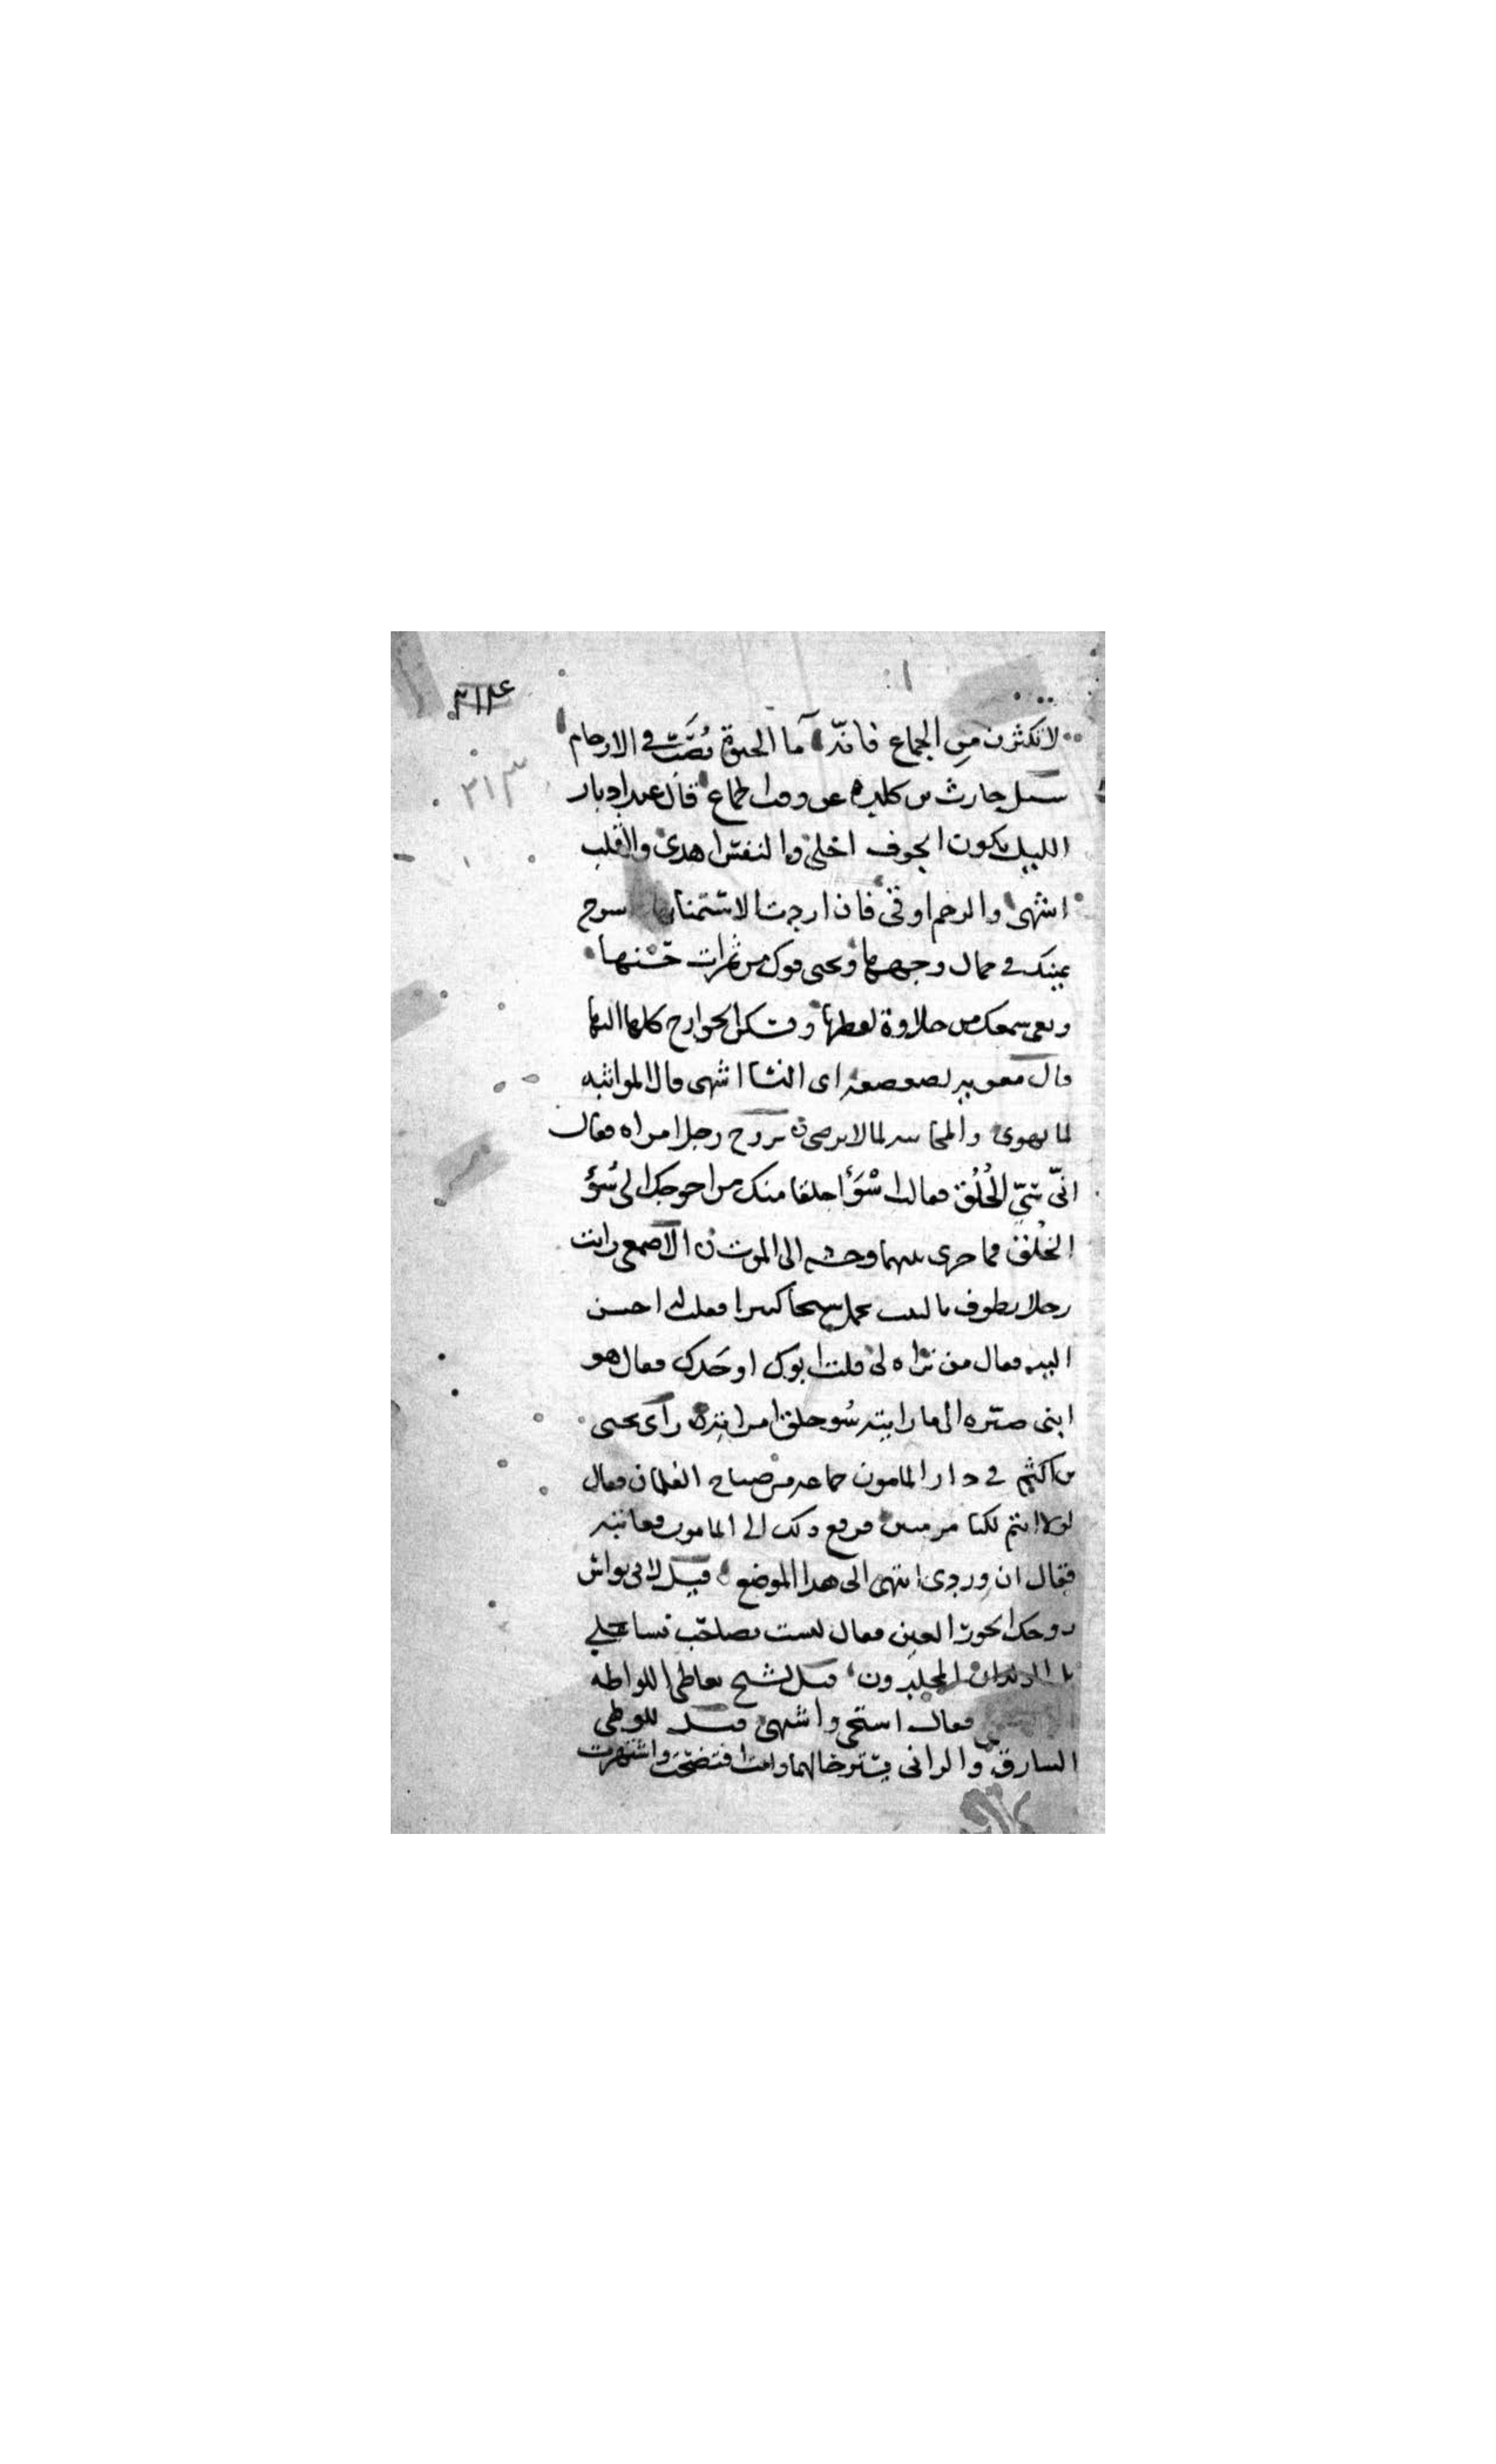 ٣١٤
لا تكثرن من الجماع فانه ما الحيوة يُصَبّ في الارحام
٣١٣
سئل حارث بن كلدة عن وقت الجماع قال عند ادبار
الليل يكون الجوف اخلى والنفس اهدى والقلب
اشهى والرحم اوفى فان اردت الاستمتاع بها سرح
عينيك في جمال وجهها ويجنى فوك من ثمرات حسنها
ويعى سمعك من حلاوة لفظها وتسكن الجوارح كلها اليها
قال معويه لصعصعه اى النسا اشهى قال المواتيه
لما يهوى والمجانبه لما لا يرضى تزوج رجل امراه فقال
انّى سيّئ الخُلُق فقالت اسْوَأ خلقا منك من احوجك الى سُوء
الخلق فما جرى بينهما وحشه الى الموت الاصمعى رايت
رجلا يطوف بالبيت يحمل شيخا كبيرا فقلت له احسن
اليه فقال من تراه لى قلت ابوك او جدك فقال هو
ابنى صيّره الى ما رايته سُو خلق امراته راى يحيى
بن اكثم في دار المامون جماعه من صباح الغلمان فقال
لولا انتم لكنا مومنين فرفع ذلك الى المامون فعاتبه
فقال ان وردى انتهى الى هذا الموضع قيل لابى نواس
زوجك الحور العين فقال لست بصاحب نسا على
بالولدان المخلدون قيل لشيخ تعاطى اللواطه
فقال استحى واشهى قيل للوطى
السارق والزانى يستر حالهما وانت افتضحت واشتهرت